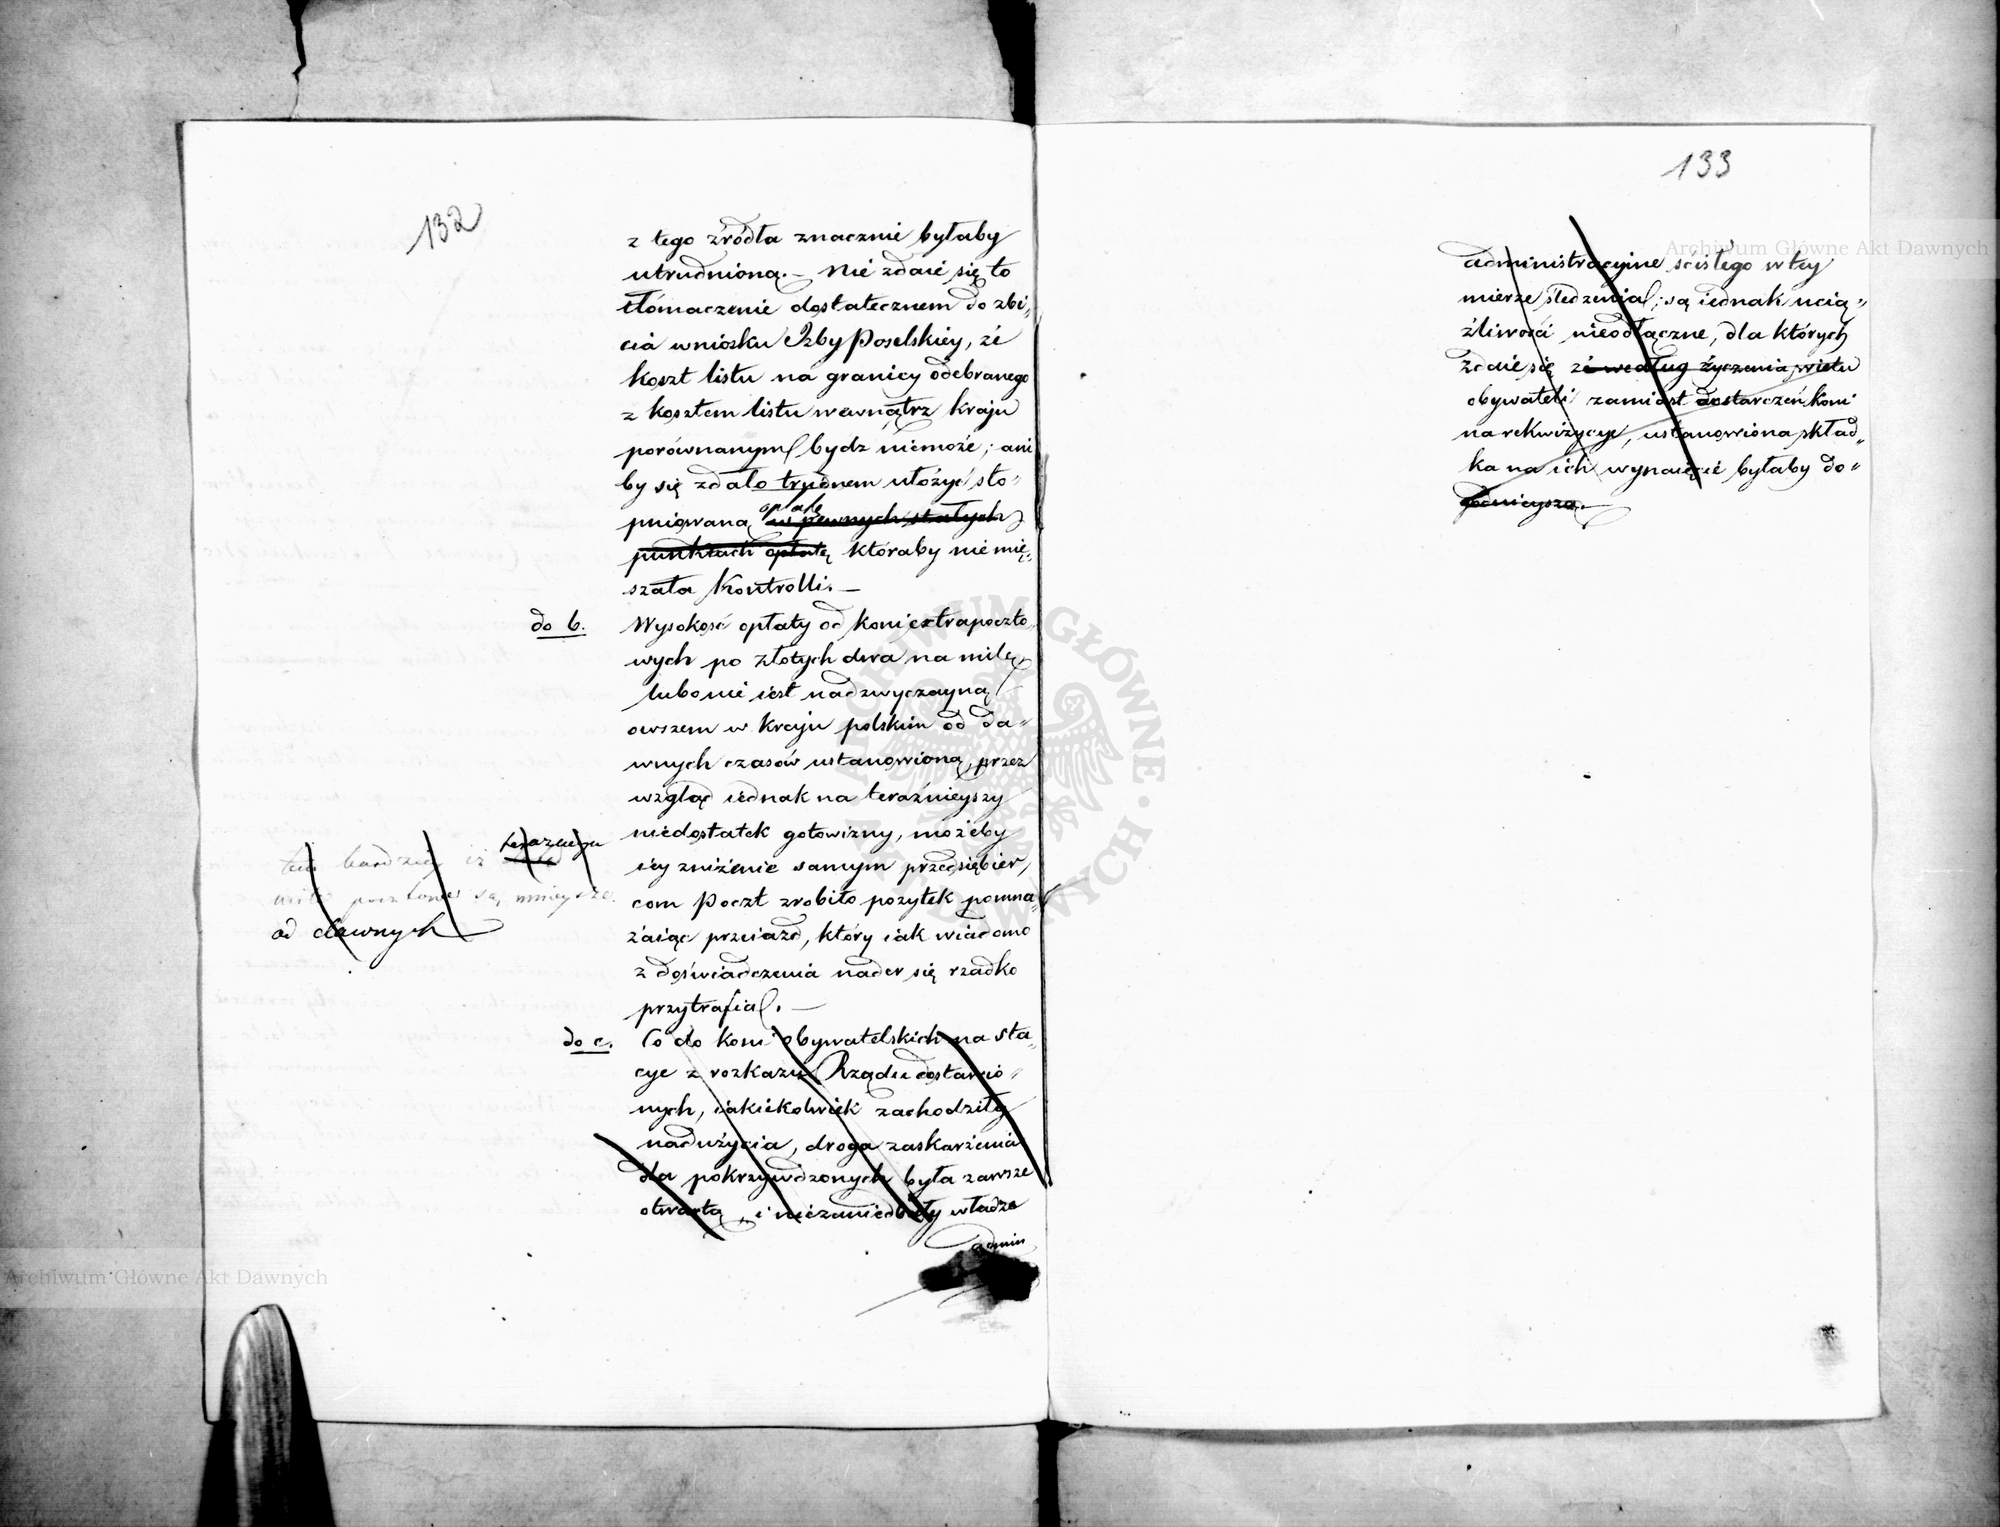 132
z tego źródła znacznie byłaby
utrudnioną. – Nie zdaie się to
tłómaczenie dostatecznem do zbi-
cia wniosku Izby Poselskiey, że
koszt listu na granicy odebranego
z kosztem listu wewnątrz kraju
porównanym bydz niemoże; ani
by się zdało trudnem ułożyć sto-
pniowaną opłatę w pewnych stałych
punktach opłatę któraby nie mię-
szała Kontrolli. –
do b. Wysokość opłaty od koni extrapoczto-
wych po złotych dwa na milę,
lubo nie iest nadzwyczayną
owszem w kraju polskim od da-
wnych czasów ustanowioną, przez
wzgląd iednak na teraźnieyszy
niedostatek gotowizny, możeby
iey zniżenie samym przedsiębier-
com Poczt zrobiło pożytek pomna-
żaiąc przeiazd, który iak wiadomo
z doświadczenia nader się rzadko
przytrafia. –
tem bardziey iż
mile pocztowe są mnieysze
od dawnych
do c. Co do koni obywatelskich na sta-
cye z rozkazu Rządu dostawio-
nych, iakiekolwiek zachodziły
nadużycia, droga zaskarżenia
dla pokrzywdzonych była zawsze
otwartą, i niezaniedbały władze
admin
133
administracyine scisłego w tey
mierze śledzenia; są iednak ucią-
żliwości nieodłączne, dla których
zdaie się że według życzenia wielu
obywateli zamiast dostarczeń koni
na rekwizycye, ustanowiona skład-
ka na ich wynaięcie byłaby do-
godnieyszą. –
Archiwum Główne Akt Dawnych
Archiwum Główne Akt Dawnych
ARCHIWUM GŁÓWNE AKT DAWNYCH